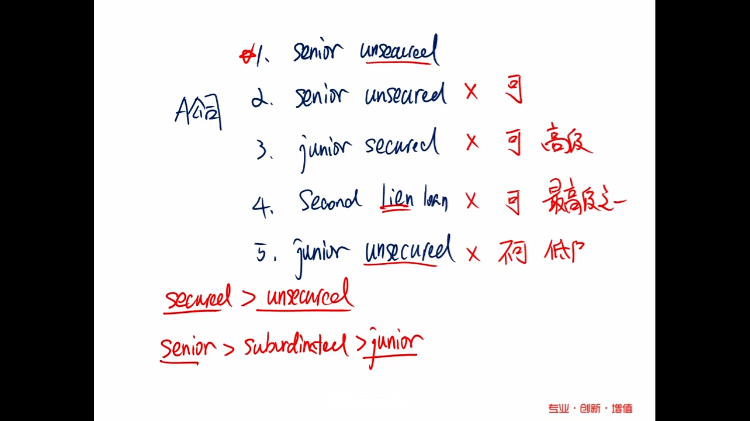 1. senior unsecured
A公司
2. senior unsecured × 可
3. junior secured × 可 高级
4. Second Lien loan × 可 最高级之一
5. junior unsecured × 不可 低
secured > unsecured
senior > subordinated > junior
专业·创新·增值